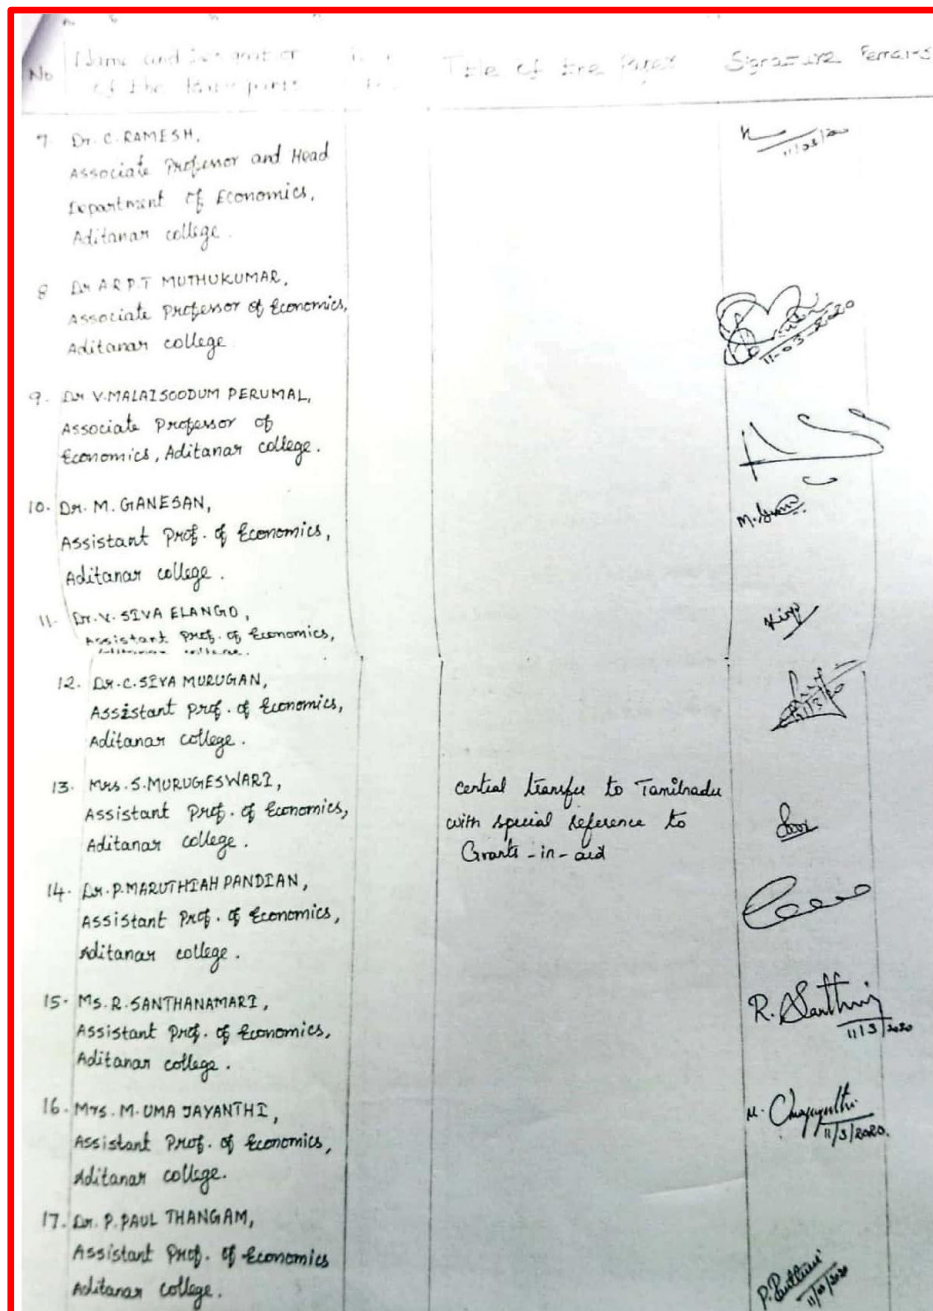 No Name and Designation Title of the Paper Signature Remarks
of the Participants
7 Dr. C. RAMESH,
Associate Professor and Head
Department of Economics,
Aditanar college.
11/03/20
8 Dr A.R.P.T MUTHUKUMAR,
Associate Professor of Economics,
Aditanar college
11-03-2020
9. Dr V.MALAISOODUM PERUMAL,
Associate Professor of
Economics, Aditanar college.
10. Dr. M. GANESAN,
Assistant Prof. of Economics,
Aditanar college.
11. Dr. V. SIVA ELANGO,
Assistant Prof. of Economics,
Aditanar college.
12. Dr. C. SIVA MURUGAN,
Assistant Prof. of Economics,
Aditanar college.
11/3/20
13. Mrs. S. MURUGESWARI,
Assistant Prof. of Economics,
Aditanar college.
central transfer to Tamilnadu
with special reference to
Grants-in-aid
14. Dr. P. MARUTHIAH PANDIAN,
Assistant Prof. of Economics,
Aditanar college.
15. Ms. R. SANTHANAMARI,
Assistant Prof. of Economics,
Aditanar college.
R. Santhni
11/3/2020
16. Mrs. M. UMA JAYANTHI,
Assistant Prof. of Economics,
Aditanar college.
M.
11/3/2020.
17. Dr. P. PAUL THANGAM,
Assistant Prof. of Economics
Aditanar college.
P.
11/03/2020